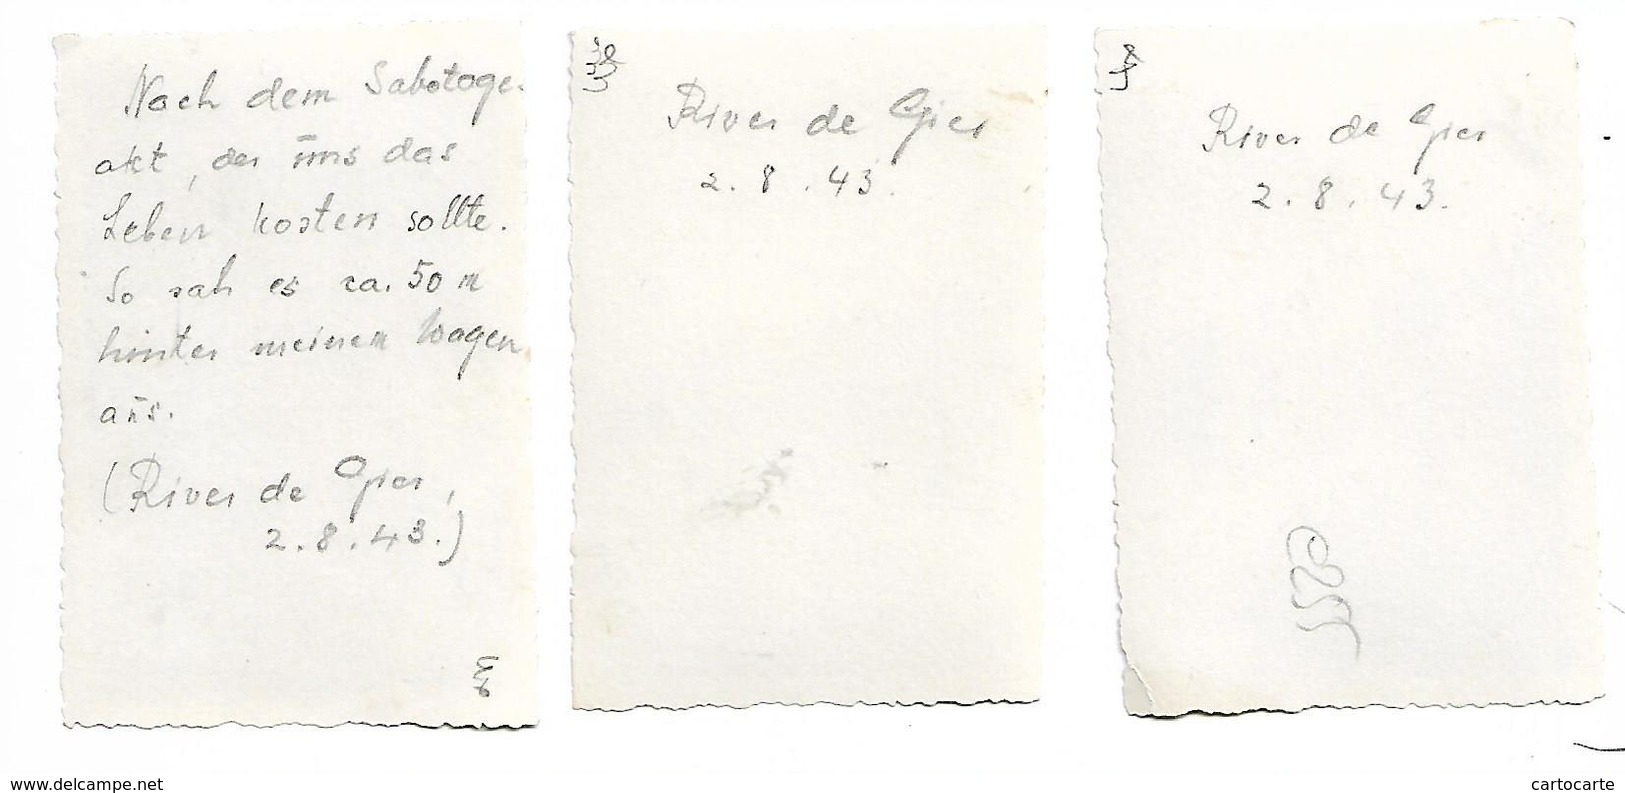 Nach dem Sabotage-
akt, der uns das
Leben kosten sollte.
So sah es ca. 50 m
hinter meinem Wagen
aus.
(River de Gier,
2.8.43.)
River de Gier
2.8.43.
River de Gier
2.8.43.
www.delcampe.net
cartocarte